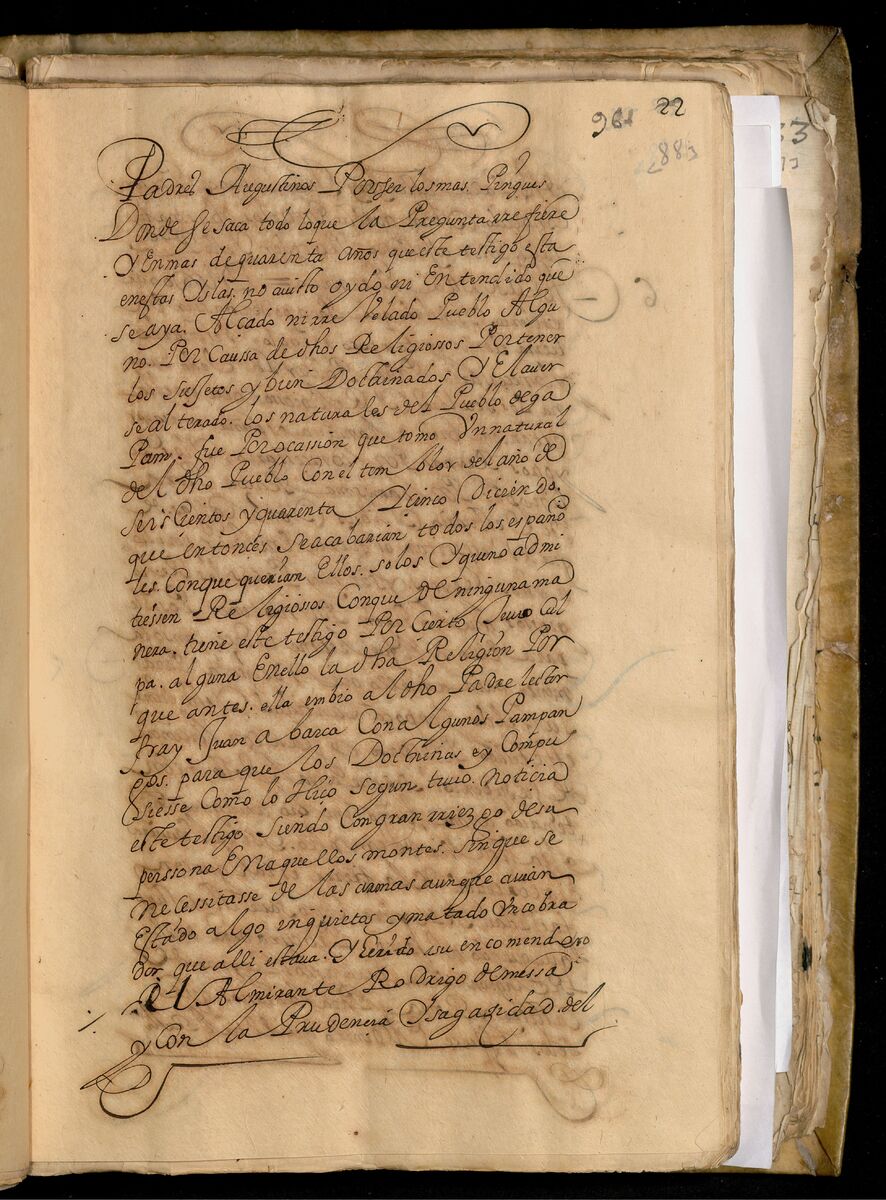 981 22
883
Padres Augustinos Porser los mas. Pingues
Donde se saca todo loque la Pregunta rrefiere
Y Enmas dequarenta años queeste testigo esta
enestas Yslas. no auisto oydo ni Entendido que
se aya. Alçado ni rre Velado Pueblo Algu
no. Por Caussa de dhos Religiossos Portener
los sujetos y bien Dotrinados Y El aver
se al terado. los naturales del Pueblo dega
Pam. fue Por ocassion que tomo Vn natural
del dho Pueblo Con el tem blor del año de
seis Cientos y quarenta Y cinco Diciendo.
que entonces se acabarian todos los españo
les. Conque querian Ellos. solos Y queno admi
tiessen Religiossos Conque de ninguna ma
nera. tiene este testigo Por Cierto tuuo Cul
pa. alguna Enello la dha Religion Por
que antes. ella embio al dho Padre letor
fray Juan abarca Con algunos Pampan
gos. para que los Dotrinas e y Compu
siesse Como lo Hiço segun tuuo. noticia
este testigo siendo Con gran rriezgo desu
perssona En aquellos montes. sin que se
neCessitasse de las armas aunque avian
Estado algo inquietos y matado Vn cobra
dor que alli estava. Y Erido asu encomendero
El Almirante Rodrigo de messa
y Con la Prudencia Y sagazidad. del